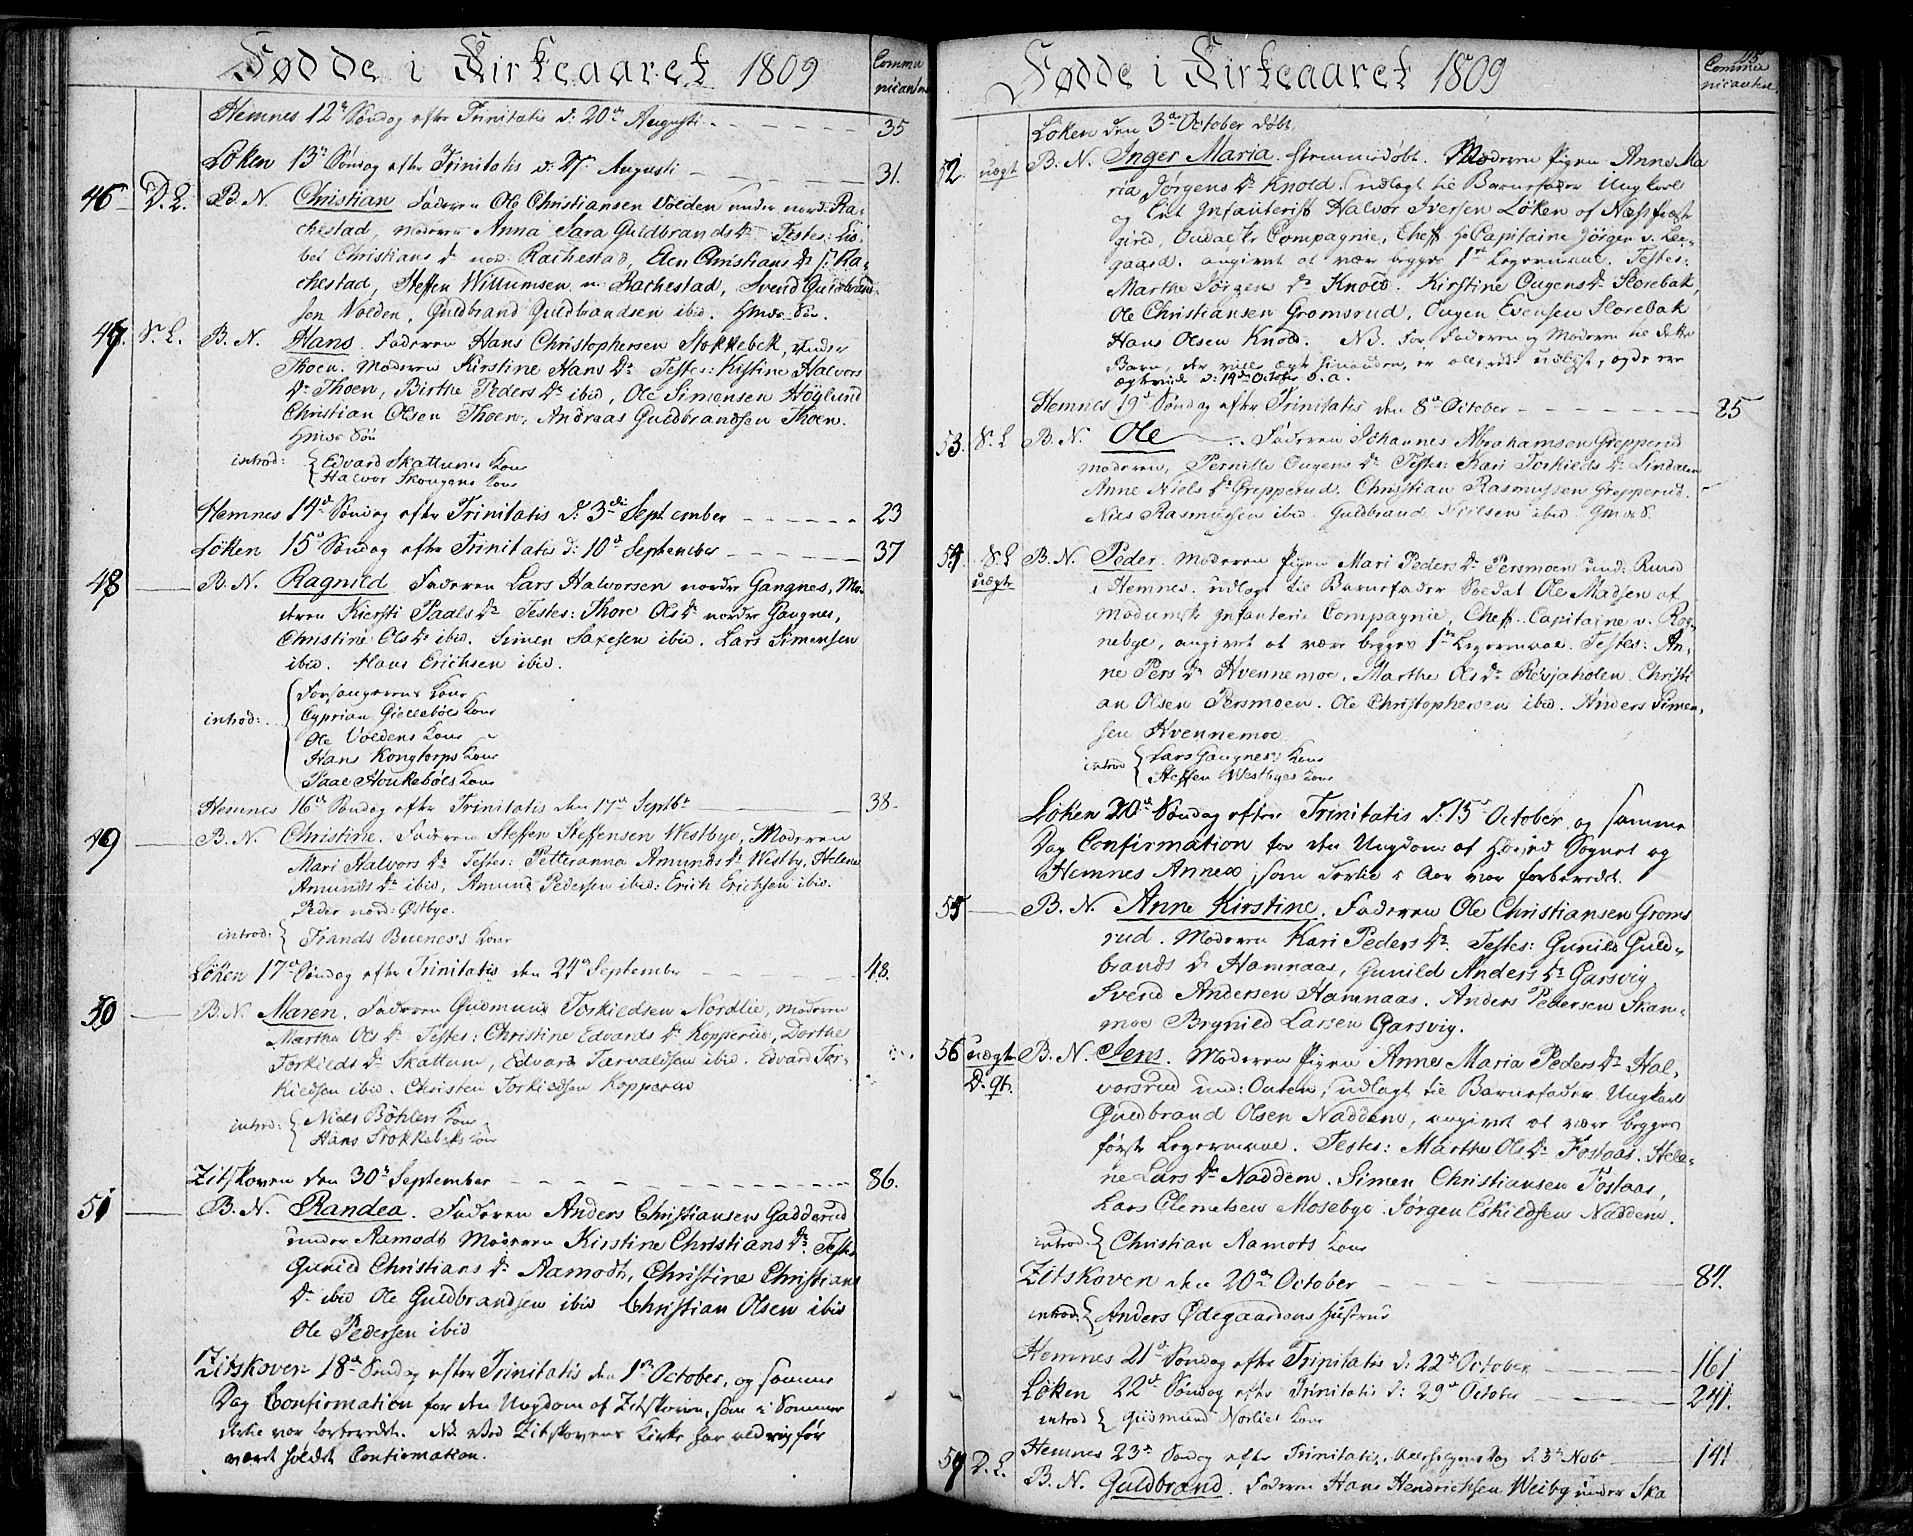 Fødde i Kirkeaaret 1809
Commu
nicantere
Hemnes 12te Søndag efter Trinitatis d: 20de Augusti. 35
Löken 13de Søndag efter Trinitatis d: 27 Augusti 31.
46 D. L. B. N. Christian Faderen Ole Christiansen Volden under nord: Ra-
chestad, Moderen Anna Sara Guldbrands Dr Testes: Lis-
bet Christians Dr nor: Rachestad, Elen Christians Dr s: Ra-
chestad, Steffen Willumsen n: Rachestad, Svend Guldbrand-
sen Volden, Guldbrand Guldbrandsen ibid. Hmde Søn.
47. V. L. B. N. Hans. Faderen Hans Christophersen Stokkebek, under
Thoen. Moderen Kirstine Hans Dr Testes: Kistine Halvors
Dr Thoen, Birthe Peders Dr ibid, Ole Simensen Höylund
Christian Olsen Thoen, Andreas Guldbrandsen Thoen.
Hmde Søn
introd: Edvard Skattums Kone
Halvor Skougens Kone
Hemnes 14de Søndag efter Trinitatis d: 3die September 23
Löken 15de Søndag efter Trinitatis d: 10de September 37
48 B. N. Ragnild Faderen Lars Halvorsen nordre Gangnes, Mo-
deren Kiersti Paals Dr Testes: Thore Ols Dr nordre Gangnes,
Christine Ols Dr ibid. Simen Saxesen ibid. Lars Simensen
ibid. Hans Erichsen ibid.
introd: Forsangerens Kone
Cyprian Giellebøls Kone
Ole Voldens Kone
Hans Kongtorps Kone
Paal Houkebøls Kone
Hemnes 16de Søndag efter Trinitatis den 17de Septbr 38.
49 B. N. Christine. Faderen Steffen Steffensen Westbye, Moderen
Mari Halvors Dr Testes: Petteranna Amunds Dr Westby, Helene
Amunds Dr ibid, Amund Pedersen ibid: Erich Erichsen ibid.
Peder nord: Østbye.
introd: Trands Buenes's Kone
Löken 17de Søndag efter Trinitatis den 24de September 48.
50 B. N. Maren. Faderen Gudmund Torkildsen Nordlie, Moderen
Marthe Ols Dr Testes: Christine Edvards Dr Kopperud, Dorthe
Torkilds Dr Skattum, Edvard Tarvaldsen ibid. Edvard Tor-
kildsen ibid. Christen Torkildsen Kopperud
introd: Niels Böhlers Kone
Hans Stokkebeks Kone
Zitskoven den 30te September 86.
51 B. N. Randea. Faderen Anders Christiansen Gadderud
under Aamodt Moderen Kirstine Christians Dr. Testes
Gunild Christians Dr Aamodt, Christine Christians
Dr ibid Ole Guldbrandsen ibid Christian Olsen ibid
Ole Pedersen ibid
Zitskoven 18de Søndag efter Trinitatis den 1ste October, og samme
Dag Confirmation for den Ungdom af Zitskoven, som i Sommer
dertil var forberedt. NB. Ved Zitskovens Kirke har aldrig før
været holdet Confirmation.
Fødde i Kirkeaaret 1809
115
Commu
nicantere
Löken den 3die October døbt.
52. uægt B. N. Inger Maria. hiemmedøbt. Moderen Pigen Anne Ma
ria Jørgens Dr Knold. udlagt til Barnefader Ungkarl
og Infanterist Halvor Iversen Löken af
Compagnie, Cheff Hr Capitaine Jörgen v. Lee-
gaard. angivet at være begges 1ste Leyermaal. Testes:
Marthe Jörgens Dr Knold. Kirstine Ougens Dr Slorebak,
Ole Christiansen Gromsrud, Ougen Evensen Slorebak
Hans Olsen Knold. NB. For Faderen og Moderen til dette
Barn, der ville ægte hinanden, er allerede udlyst, og de ere
ægteviede d: 19de October s. a.
Hemnes 19de Søndag efter Trinitatis den 8de October 85
53. V. L B. N. Ole Faderen Johannes Abrahamsen Grepperud
Moderen, Pernille Ougens Dr Testes: Kari Torkilds Dr Lindalen
Anne Niels Dr Grepperud. Christian Rasmussen Grepperud.
Niels Rasmussen ibid Guldbrand Nielsen ibid Hmde S.
54 V. L uægte B. N. Peder. Moderen Pigen Mari Peders Dr Persmoen und: Ruud
i Hemnes. udlagt til Barnefader Soldat Ole Madsen af
Modumsk Infanterie Compagnie, Cheff. Capitaine v. Rog-
nebye, angivet at være begges 1ste Leyermaal. Testes: An-
ne Pers Dr Hvennemoe, Marthe Ols Dr Revjaholen. Christi
an Olsen Persmoen. Ole Christophersen ibid. Anders Simen-
sen Hvennemoe.
introd Lars Gangnes's Kone
Steffen Westbyes Kone
Löken 20de Søndag efter Trinitatis d: 15de October og samme
Dag Confirmation for den Ungdom af Hovedsognet og
Hemnes Annex, som dertil i Aar var forberedt.
55 B. N. Anne Kirstine. Faderen Ole Christiansen Groms
rud. Moderen Kari Peders Dr. Testes: Gunild Guld-
brands Dr Hamnaas, Gunild Anders Dr Garsvig
Svend Andersen Hamnaas. Anders Pedersen Skam-
moe Brynild Larsen Garsvig.
56 uægte D. gt. B. N. Jens. Moderen Pigen Anne Maria Peders Dr Hal-
vorsrud und: Outen, udlagt til Barnefader Ungkarl
Guldbrand Olsen Naddem, angivet at være begges
første Leyermaal. Testes: Marthe Ols Dr Fostaas. Hele-
ne Lars Dr Naddem. Simen Christiansen Fostaas,
Lars Clemetsen Mosebye Jørgen Eskildsen Naddem.
introd: Christian Aamots Kone
Zitskoven den 20de October 84.
introd: Anders Ødegaardens Hustrue
Hemnes 21de Søndag efter Trinitatis d: 22de October 161
Löken 22de Søndag efter Trinitatis d: 29de October 241.
introd Gudmund Norlies Kone
Hemnes 23de Søndag efter Trinitatis, d 5te Novbr 141
57 D. L. B. N. Guldbrand. Faderen Hans Hendrichsen Weiby under Ska